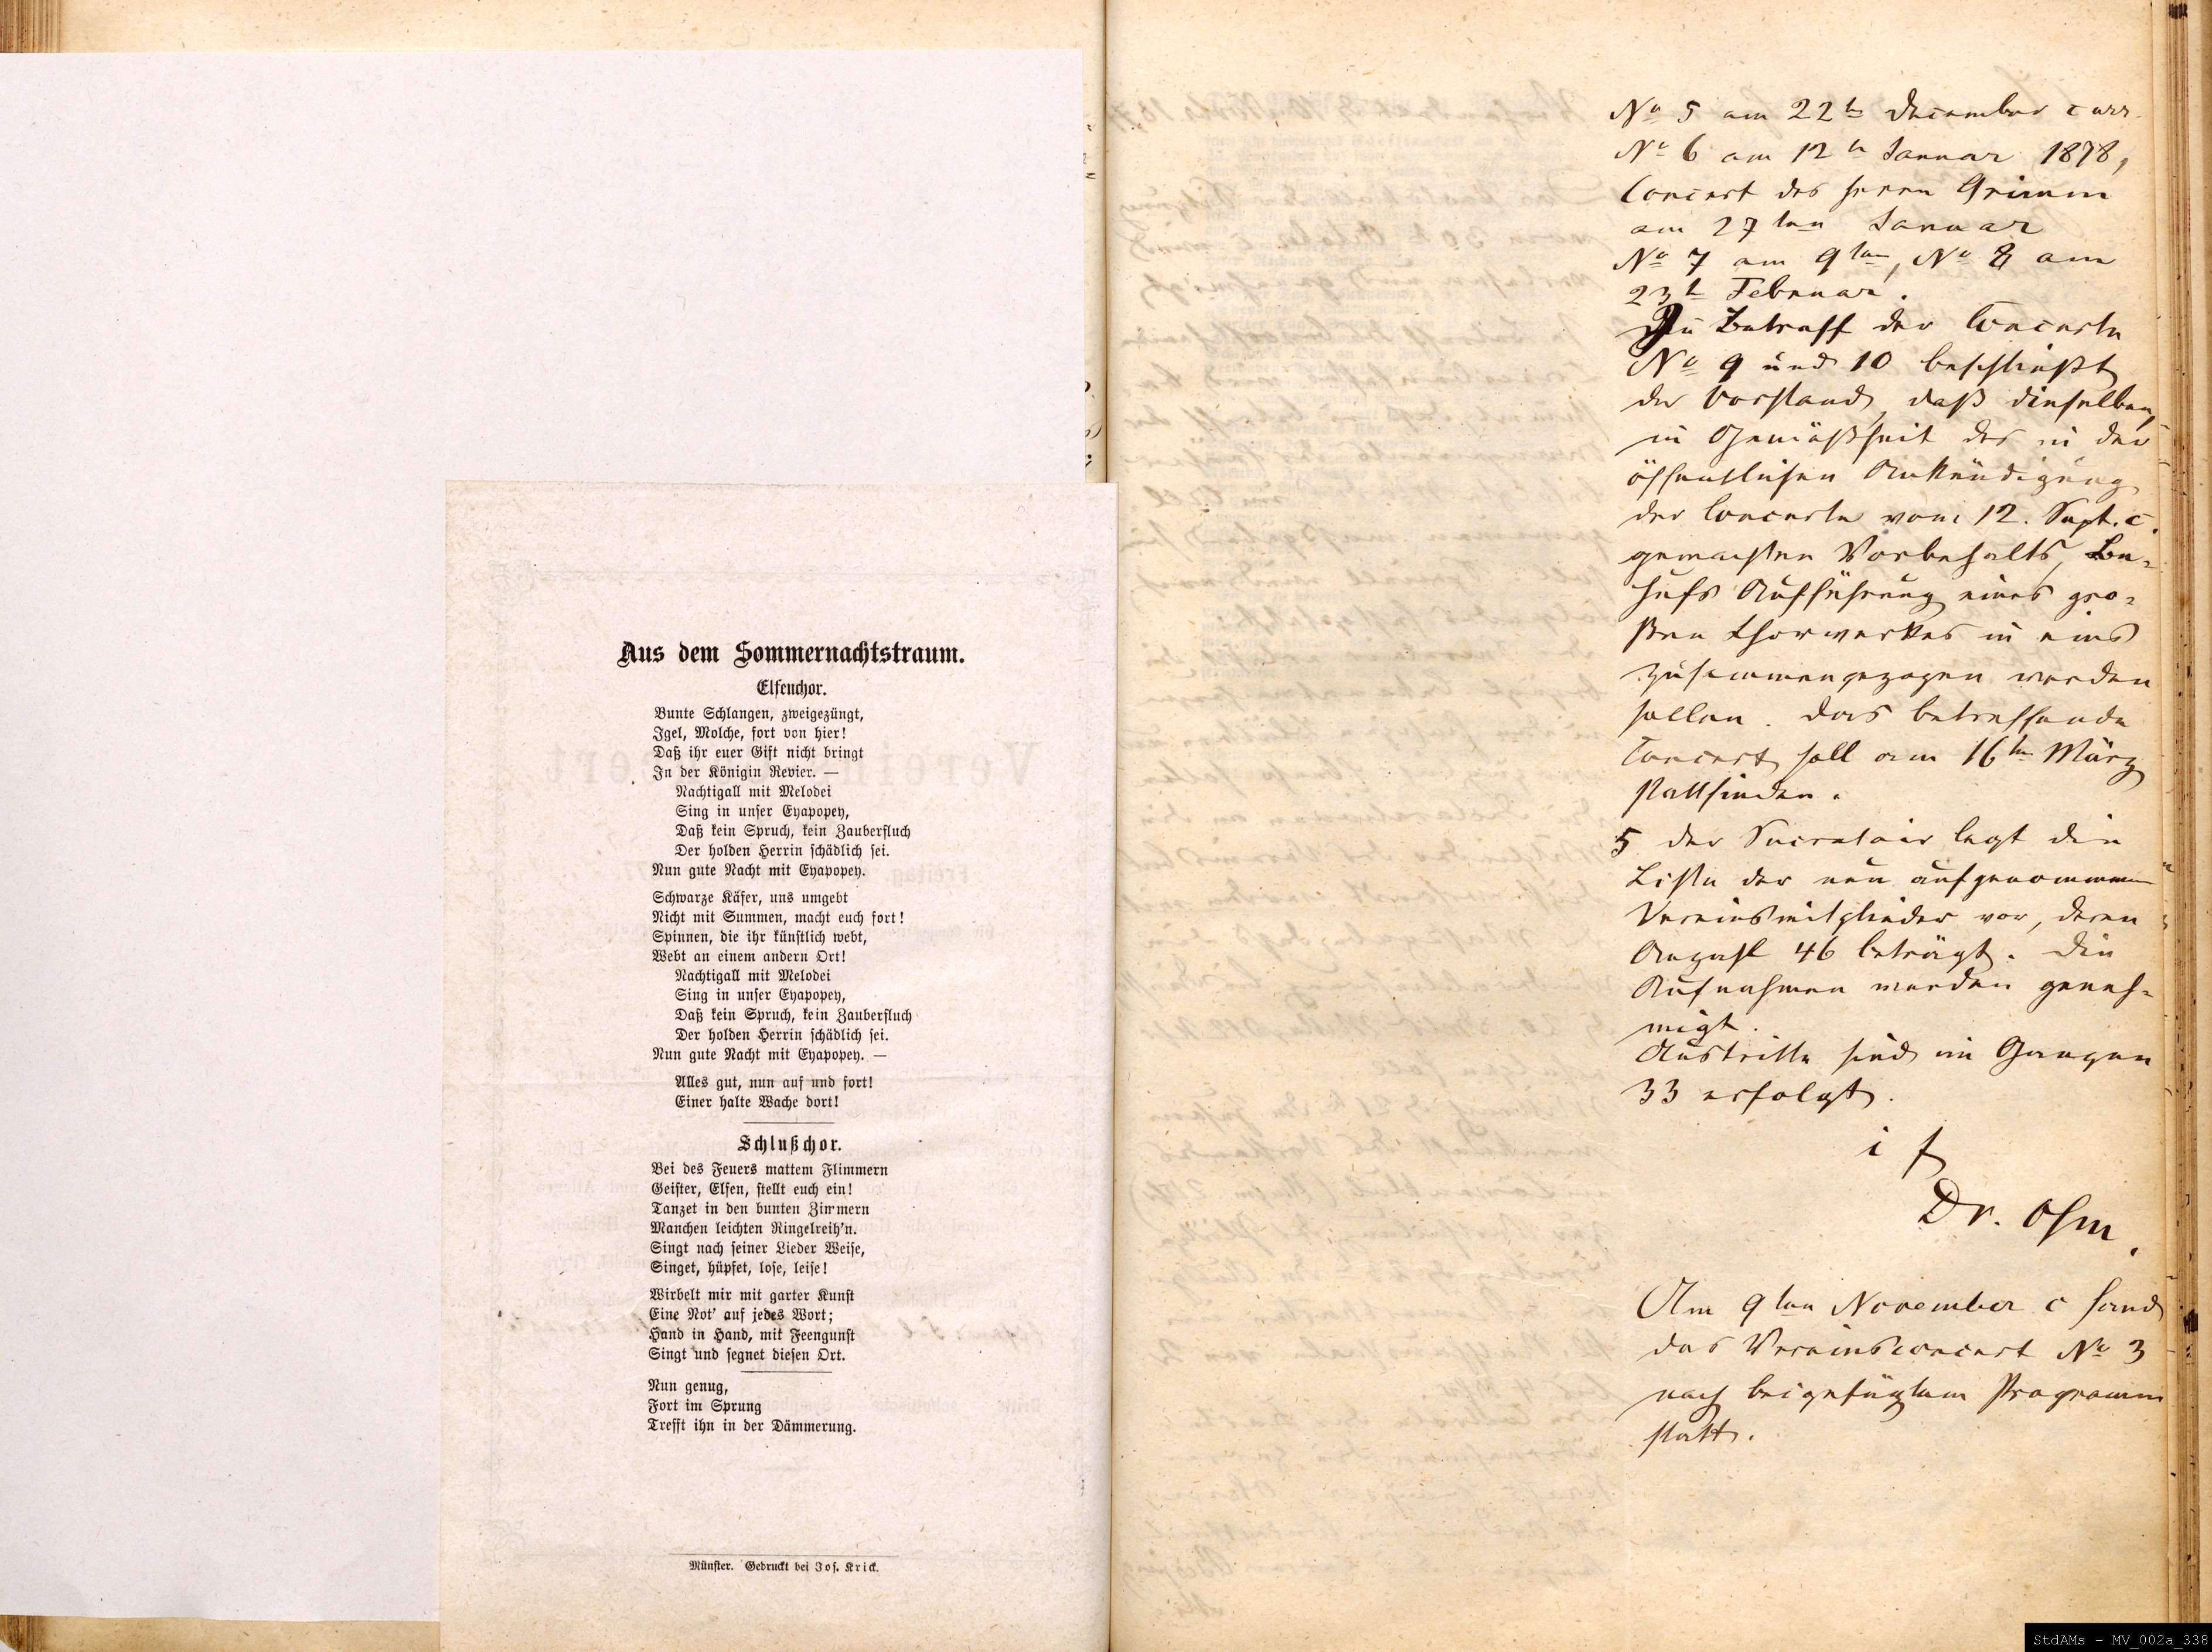 Aus dem Sommernachtstraum.
Elfenchor.
Bunte Schlangen, zweigezüngt,
Igel, Molche, fort von hier!
Daß ihr euer Gift nicht bringt
In der Königin Revier. —
Nachtigall mit Melodei
Sing in unser Eyapopey,
Daß kein Spruch, kein Zauberfluch
Der holden Herrin schädlich sei.
Nun gute Nacht mit Eyapopey.
Schwarze Käfer, uns umgebt
Nicht mit Summen, macht euch fort!
Spinnen, die ihr künstlich webt,
Webt an einem andern Ort!
Nachtigall mit Melodei
Sing in unser Eyapopey,
Daß kein Spruch, kein Zauberfluch
Der holden Herrin schädlich sei.
Nun gute Nacht mit Eyapopey. —
Alles gut, nun auf und fort!
Einer halte Wache dort!
Schlußchor.
Bei des Feuers mattem Flimmern
Geister, Elfen, stellt euch ein!
Tanzet in den bunten Zimmern
Manchen leichten Ringelreih'n.
Singt nach seiner Lieder Weise,
Singet, hüpfet, lose, leise!
Wirbelt mir mit garter Kunst
Eine Not' auf jedes Wort;
Hand in Hand, mit Feengunst
Singt und segnet diesen Ort.
Nun genug,
Fort im Sprung
Trefft ihn in der Dämmerung.
Münster. Gedruckt bei Jos. Krick.
No 5 am 22ten December curr.
No 6 am 12ten Januar 1878,
Concert des Herrn Grimm
am 27ten Januar
No 7 am 9ten, No 8 am
23t Februar.
In Betreff der Concerte
No 9 und 10 beschließt
der Vorstand, daß dieselben,
in Gemäßheit des in der
öffentlichen Ankündigung
der Concerte vom 12. Sept. c.
gemachten Vorbehalts, Be-
hufs Aufführung eines gro-
ßen Chorwerkes in eins
zusammengezogen werden
sollen. Das betreffende
Concert soll am 16ten März
stattfinden.
5 Der Secretair legt die
Liste der neu aufgenommen
Vereinsmitglieder vor, deren
Anzahl 46 beträgt. Die
Aufnahmen werden geneh-
migt.
Austritte sind im Ganzen
33 erfolgt.
Dr. Ohm.
Am 9ten November c fand
das Vereinsconcert No 3
nach beigefügtem Programm
statt.
StdAMs - MV_002a_338